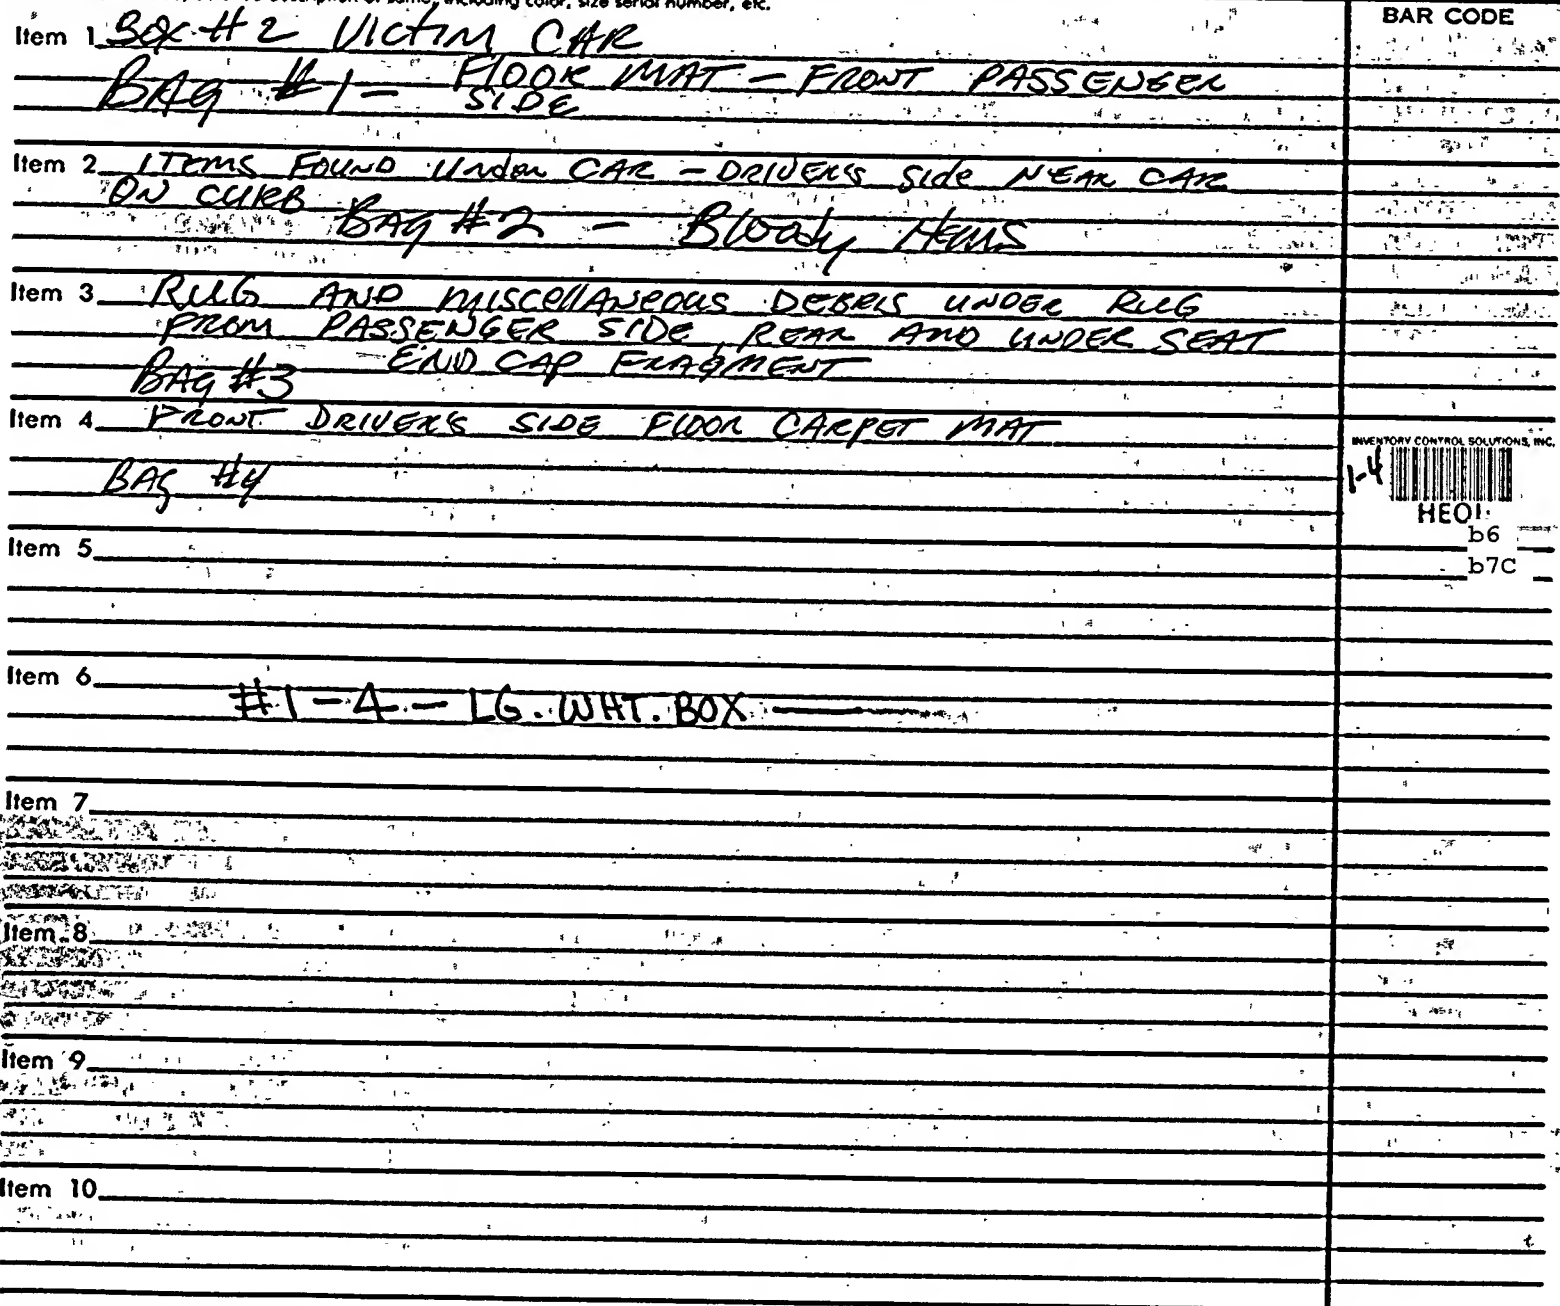 including color, size serial number, etc.
BAR CODE
Item 1 Box #2 VICTIM CAR
BAG #1 - FLOOR MAT - FRONT PASSENGER
SIDE
Item 2 ITEMS FOUND Under CAR - DRIVER'S Side NEAR CAR
ON CURB
BAG #2 - Bloody Items
Item 3 RUG AND MISCELLANEOUS DEBRIS UNDER RUG
FROM PASSENGER SIDE, REAR AND UNDER SEAT
BAG #3 - END CAP FRAGMENT
Item 4 FRONT DRIVER'S SIDE FLOOR CARPET MAT
INVENTORY CONTROL SOLUTIONS, INC.
1-4
BAG #4
HE01
b6
Item 5
b7C
Item 6
#1-4 - LG. WHT. BOX
Item 7
Item 8
Item 9
Item 10